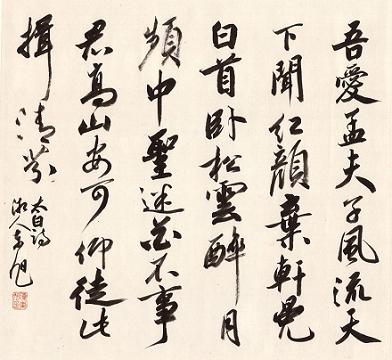 吾愛孟夫子風流天
下聞紅顏棄軒冕
白首卧松雲醉月
頻中聖迷花不事
君高山安可仰徒此
揖清芬
太白詩
湘人